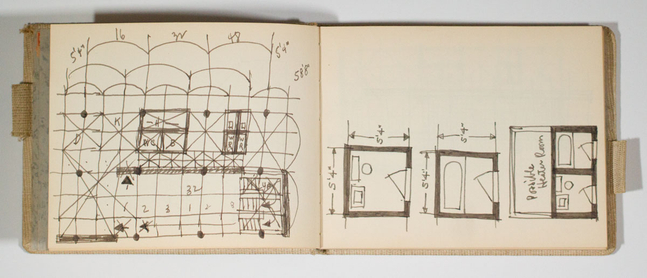 16 32 48
5'4" 5'4"
K
H
32
2 3 1
5'4" 5'4"
5'4" 5'4"
Possible
Heater Room